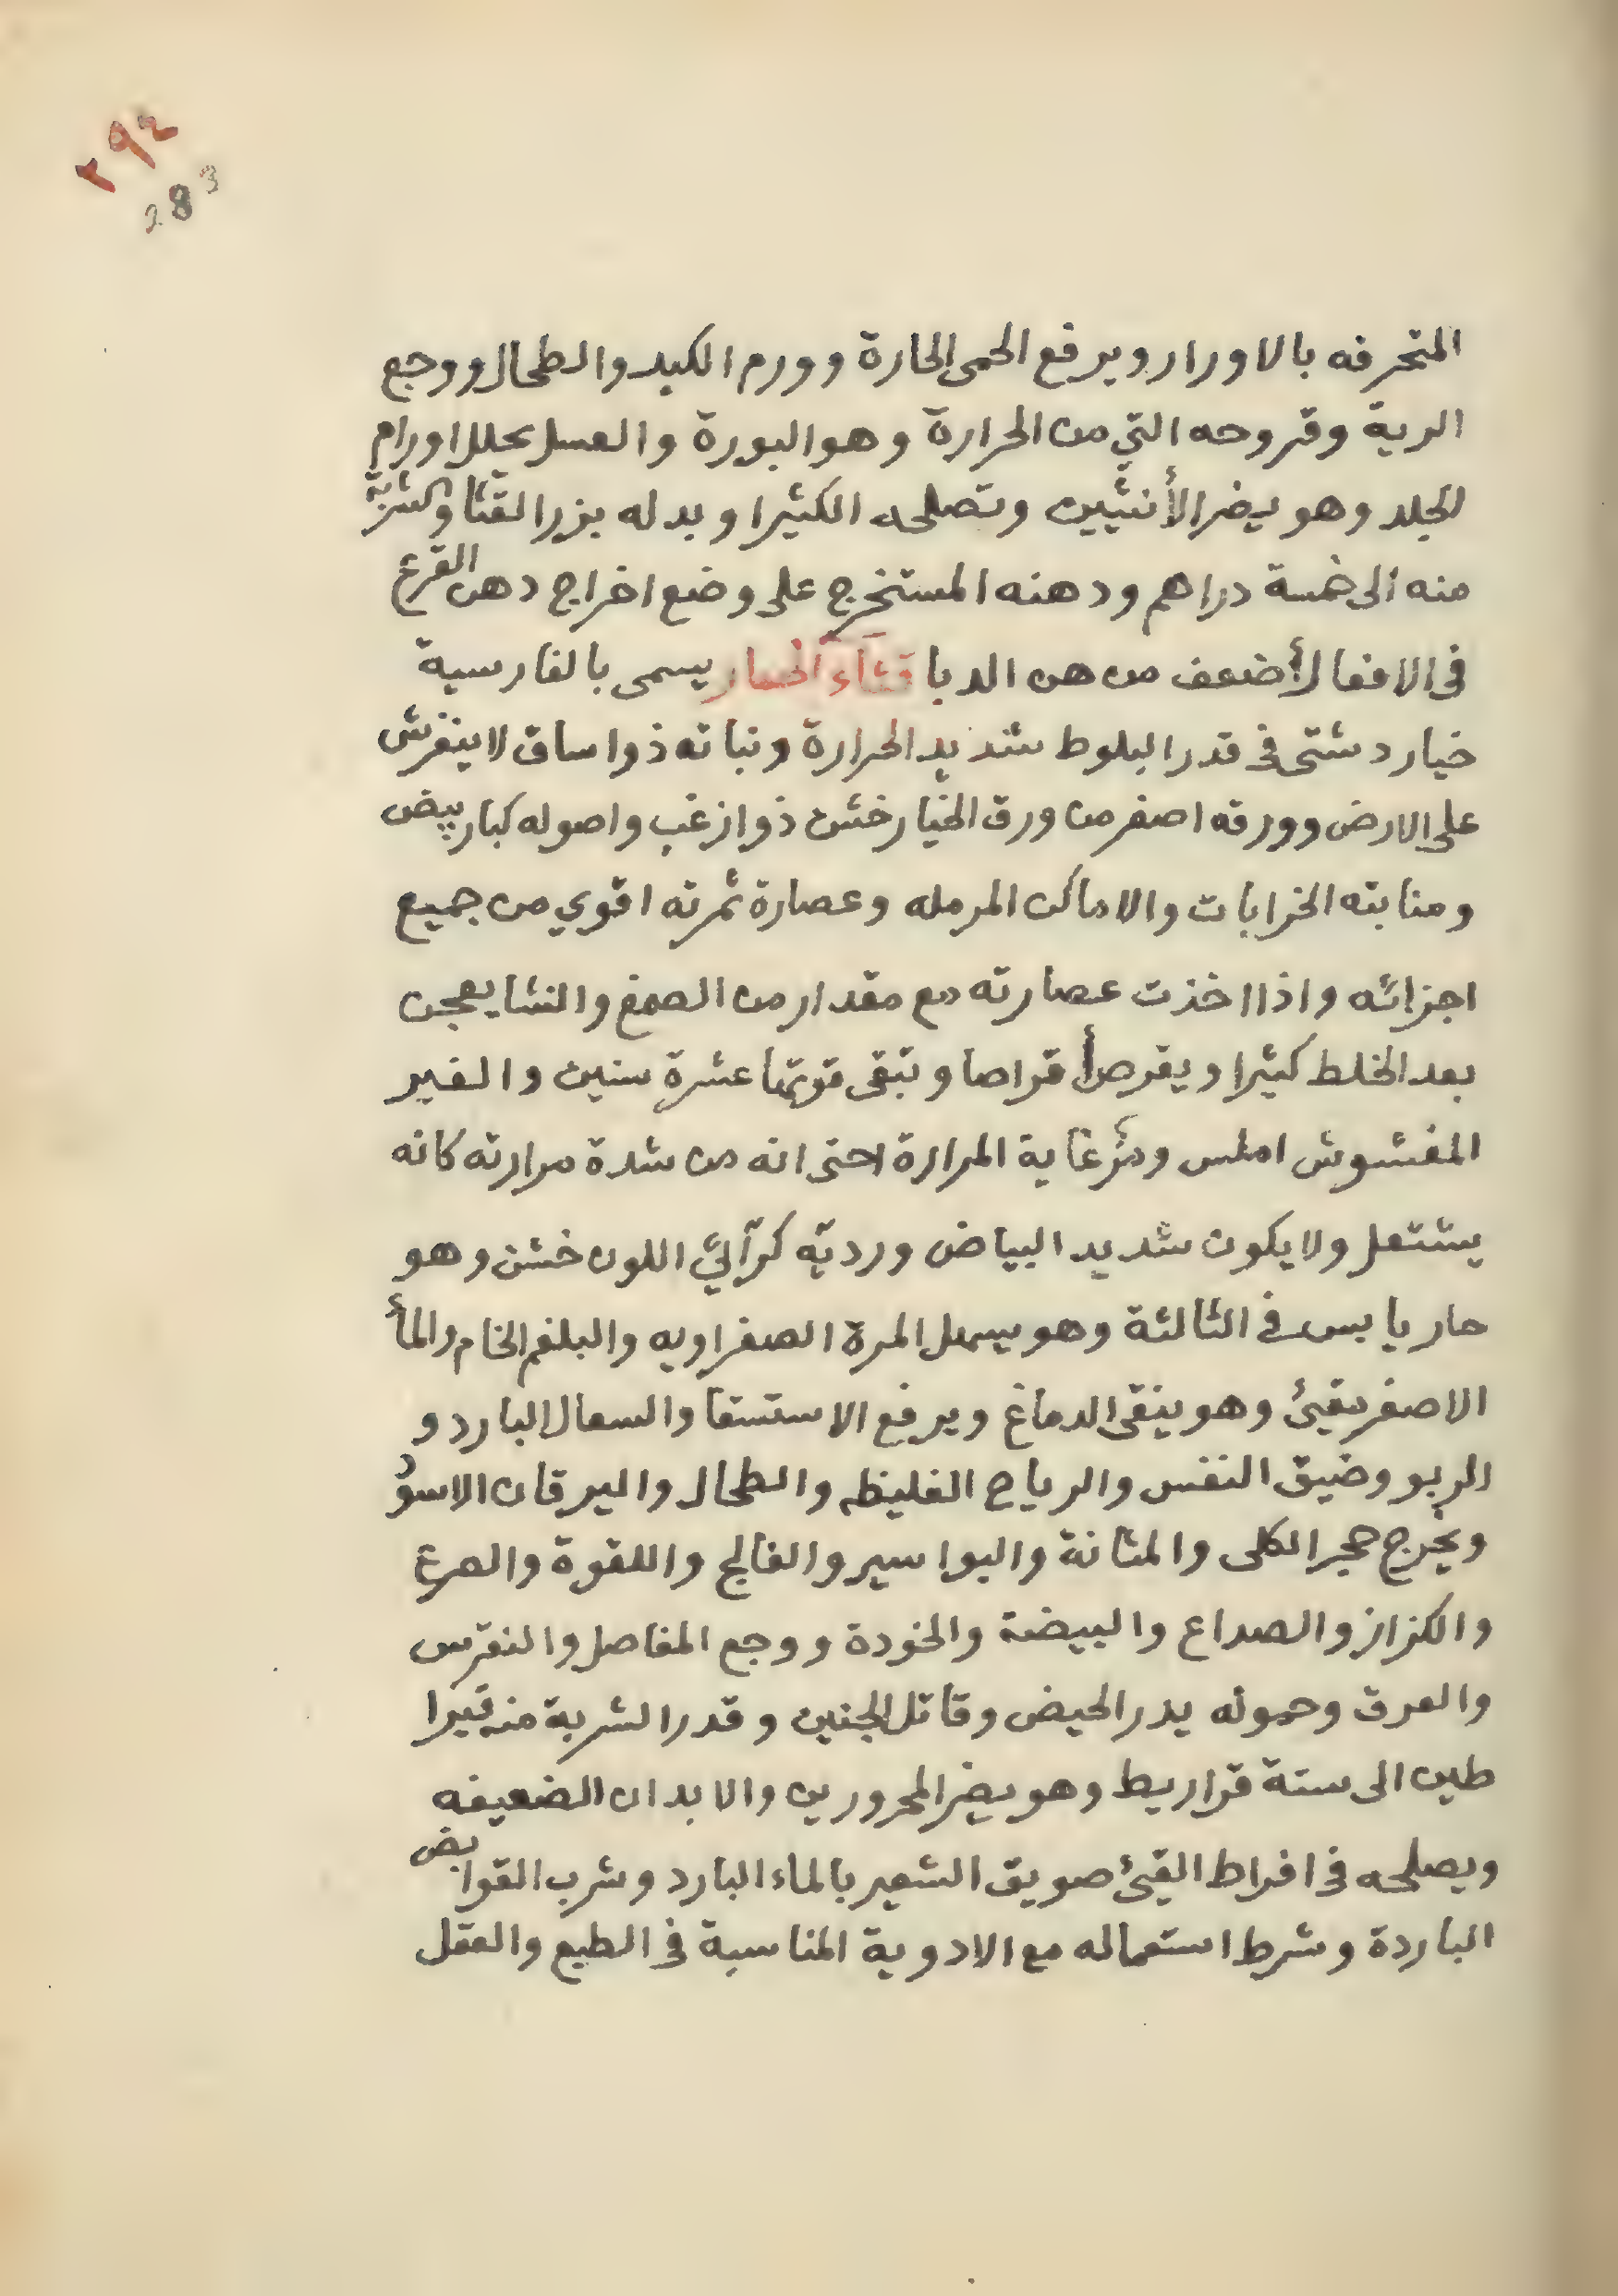 ٢٩٢
283
المتحرفه بالاورار ويرفع الحمى الحارة وورم الكبد والطحال ووجع
الرية وقروحه التي من الحرارة وهو البورة والعسل يحلل اورام
الجلد وهو يضر الأنثيين وتصلحه الكثيرا وبدله بزر القثا والشربة
منه الى خمسة دراهم ودهنه المستخرج على وضع اخراج دهن القرع
فى الافعال أضعف من هن الدبا قثآء الحمار يسمى بالفارسية
خيار دشتى فى قدر البلوط شديد الحرارة ونباته ذوا ساق لا ينفرش
على الارض وورقه اصفر من ورق الخيار خشن ذوا زغب واصوله كبار بيض
ومنابته الخرابات والاماكن المرمله وعصارة ثمرته اقوي من جميع
اجزائه واذا اخذت عصارته مع مقدار من الصمغ والنشا يعجن
بعد الخلط كثيرا ويقرص أقراصا وتبقى قوتها عشرة سنين والغير
المغشوش املس ومرٌ غاية المرارة حتى انه من شدة مرارته كانه
يشتعل ولا يكون شديد البياض ورديّه كرّآثيّ اللون خشن وهو
حار يابس فى الثالثة وهو يسهل المرة الصفراويه والبلغم الخام والمأ
الاصفر يقيئ وهو ينقى الدماغ ويرفع الاستسقا والسعال البارد و
الربو وضيق النفس والرياح الغليظه والطحال واليرقان الاسود
ويخرج حجر الكلى والمثانة والبواسير والفالج واللقوة والصرع
والكزاز والصداع والبيضة والخودة ووجع المفاصل والنقرس
والعرق وحموله يدر الحيض وقاتل الجنين وقدر الشربة منه قيرا
طين الى ستة قراريط وهو يضر المحرورين والابدان الضعيفه
ويصلحه فى افراط القيئ صويق الشعير بالماء البارد وشرب القوابض
الباردة وشرط استعماله مع الادوية المناسبة فى الطبع والعقل